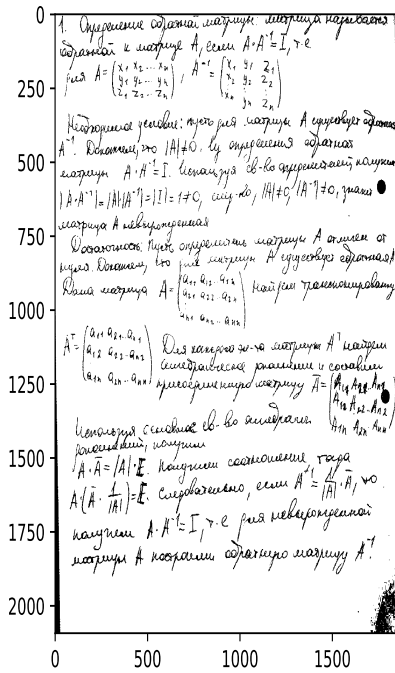 1. Определение обратной матрицы: матрица называется
обратной к матрице A, если A·A⁻¹=I, т.е
для A=(x₁ x₂...xₙ / y₁ y₂...yₙ / z₁ z₂...zₙ), A⁻¹=(x₁ y₁ z₁ / x₂ y₂ z₂ / xₙ yₙ zₙ)
Необходимое условие: пусть для матрицы A существует обратная
A⁻¹. Докажем, что |A|≠0. Из определения обратной
матрицы A·A⁻¹=I. Используя св-во определителей получим
|A·A⁻¹|=|A|·|A⁻¹|=|I|=1≠0, след-но, |A|≠0, |A⁻¹|≠0, значит
матрица A невырожденная
Достаточность: Пусть определитель матрицы A отличен от
нуля. Докажем, что для матрицы A существует обратная A
Дана матрица A=(a₁₁ a₁₂...a₁ₙ / a₂₁ a₂₂...a₂ₙ / aₙ₁ aₙ₂...aₙₙ) Найдем транспонированную
Aᵀ=(a₁₁ a₂₁...aₙ₁ / a₁₂ a₂₂...aₙ₂ / a₁ₙ a₂ₙ...aₙₙ) Для каждого эл-та матрицы Aᵀ найдем
алгебраическое дополнение и составим
присоединенную матрицу Ā=(A₁₁ A₂₁...Aₙ₁ / A₁₂ A₂₂...Aₙ₂ / A₁ₙ A₂ₙ Aₙₙ)
Используя основное св-во алгебраич.
дополнений, получим
A·Ā=|A|·E. Получаем соотношение тогда
A·(Ā·1/|A|)=E. Следовательно, если A⁻¹=1/|A|·Ā, то
получим A·A⁻¹=I, т.е для невырожденной
матрицы A построили обратную матрицу A⁻¹
0
250
500
750
1000
1250
1500
1750
2000
0 500 1000 1500